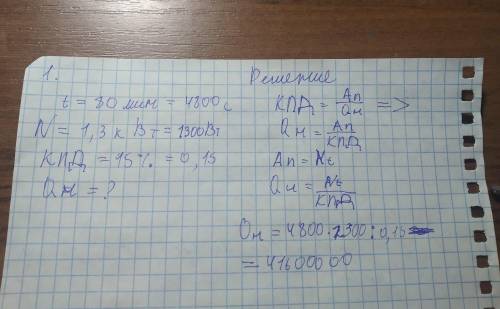 1.
t = 80 мин = 4800 с
N = 1,3 кВт = 1300Вт
КПД = 15% = 0,15
Qн = ?
Решение
КПД = Aп/Qн =>
Qн = Aп/КПД
Aп = Nt
Qн = Nt/КПД
Qн = 4800·1300:0,15
= 41600000